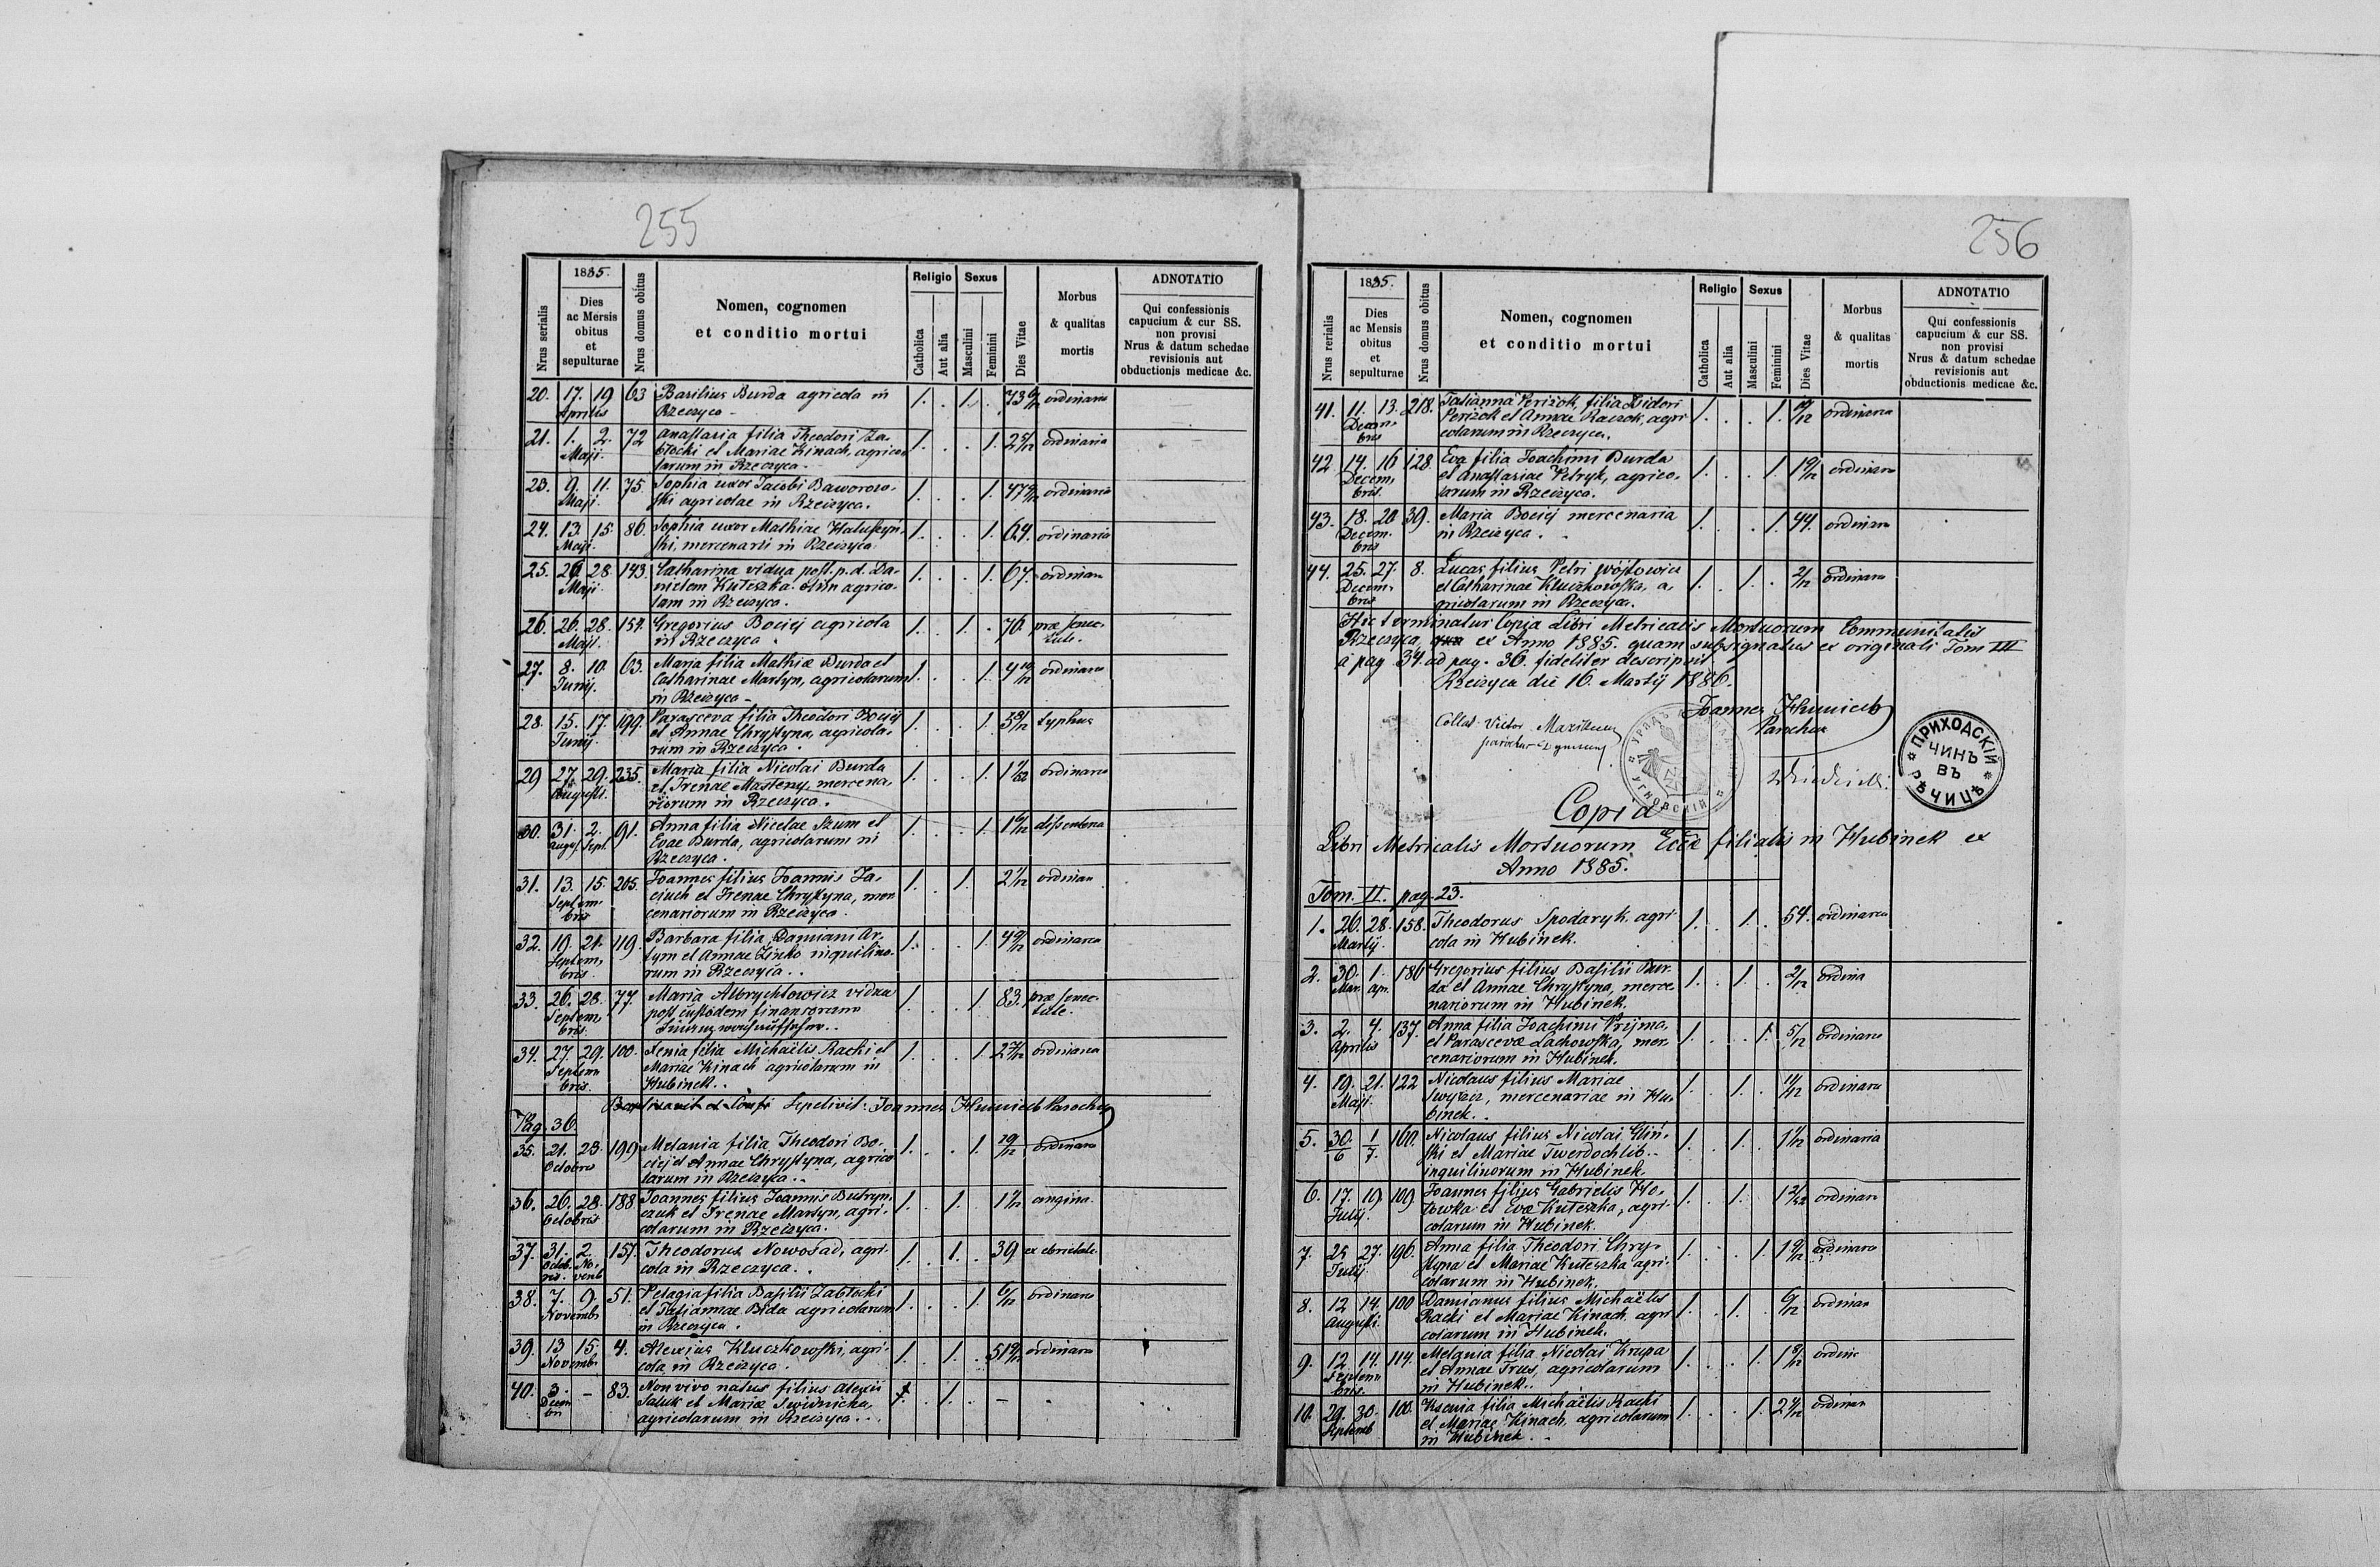 255
1885.
Nrus serialis
Dies
ac Mersis
obitus
et
sepulturae
Nrus domus obitus
Nomen, cognomen
et conditio mortui
Religio
Catholica
Aut alia
Sexus
Masculini
Feminini
Dies Vitae
Morbus
& qualitas
mortis
ADNOTATIO
Qui confessionis
capucium & cur SS.
non provisi
Nrus & datum schedae
revisionis aut
obductionis medicae &c.
20. 17. 19 63 Basilius Burda agricola in 1. . 1. . ordinaria
Aprilis Rzeczyca
21. 1. 2. 72 Anastasia filia Theodori Za- 1. . . 1. 2 5/12 ordinaria
Maji. błocki et Mariae Kinach, agrico-
larum in Rzeczyca.
23. 9. 11. 75. Sophia uxor Jacobi Baworow- 1. . . 1. ordinaria
Maji. ski agricolae in Rzeczyca.
24. 13. 15. 86. Sophia uxor Mathiae Haluszyn- 1. . . 1. 64. ordinaria
Maji. ski, mercenarii in Rzeczyca.
25. 26 28. 143. Catharina vidua post. p. d. Da- 1. . . 1. 67. ordinar
Maji nielem Kuteszka olim agrico-
lam in Rzeczyca.
26. 26. 28. 154. Gregorius Bociej agricola 1. . 1. . 76. prae senec-
Maji. in Rzeczyca. tute.
27. 8. 10. 63. Maria filia Mathiae Burda et 1. . . 1. ordinara
Junij. Catharinae Martyn, agricolarum
in Rzeczyca
28. 15. 17. 199. Parasceva filia Theodori Bociej 1. . . 1. typhus
Junij. et Annae Chrystyna, agricola-
rum in Rzeczyca.
29 27. 29. 235. Maria filia Nicolai Burda 1. . . 1. ordinara
Augusti. et Irenae Masteny, mercena-
riorum in Rzeczyca.
30. 31. 2. 91. Anna filia Nicolae Szum et 1. . . 1. dissenteria
Aug. Sept. Evae Burda, agricolarum in
Rzeczyca.
31. 13. 15. 205. Joannes filius Joannis Ja- 1. . 1. . ordinar
Septem- ciuch et Irenae Chrystyna, mer
bris cenariorum in Rzeczyca.
32. 19. 21. 119. Barbara filia Damiani Ar- 1. . . 1. ordinara
Septem- tym et Annae Zinko inquilino-
bris. rum in Rzeczyca.
33. 26. 28. 77. Maria Albrychtowicz vidua 1. . . 1. 83. prae senec-
Septem- post custodem finansorum tute.
bris.
34. 27. 29. 100. Xenia filia Michaëlis Racki et 1. . . 1. ordinara
Septem Mariae Kinach agricolarum in
bris. Hubinek.
Sepelivit: Joannes Parochus
Pag. 36.
35. 21. 23. 199 Melania filia Theodori Bo- 1. . . 1. ordinara
Octobris ciej et Annae Chrystyna, agrico
larum in Rzeczyca.
36. 26. 28. 188 Joannes filius Joannis Butryn- 1. . 1. angina.
Octobris czuk et Irenae Martyn, agri-
colarum in Rzeczyca.
37. 31. 2. 157. Theodorus Nowosad, agri- 1. . 1. . 39 ex ebrietate
Octob- No- cola in Rzeczyca.
ris. vemb
38. 7. 9. 51. Pelagia filia Basilii Zabłocki 1. . . 1. 6/12 ordinara
Novembr et Tatiannae Bida agricolarum
in Rzeczyca.
39. 13 15. 4. Alexius Kluczkowski, agri- 1. . 1. . ordinara
Novemb. cola in Rzeczyca.
40. 3. – 83. Non vivo natus filius Alexii . 1. . –
Decem Saluk et Mariae Swidnicka,
bri agricolarum in Rzeczyca.
256
1885.
Nrus rerialis
Dies
ac Mensis
obitus
et
sepulturae
Nrus domus obitus
Nomen, cognomen
et conditio mortui
Religio
Catholica
Aut alia
Sexus
Masculini
Feminini
Dies Vitae
Morbus
& qualitas
mortis
ADNOTATIO
Qui confessionis
capucium & cur SS.
non provisi
Nrus & datum schedae
revisionis aut
obductionis medicae &c.
41. 11. 13. 218. Tatianna Perizok, filia Isidori 1. . . 1. ordinaria
Decem- Perizok et Annae Raczok, agri
bris colarum in Rzeczyca.
42. 14. 16 128. Eva filia Joachimi Burda 1. . . 1. ordinara
Decem- et Anastasiae Petryk, agrico-
bris. larum in Rzeczyca.
43. 18. 20 39. Maria Bociej mercenaria 1. . . 1. 44. ordinara
Decem- in Rzeczyca.
bris
44. 25. 27. 8. Lucas filius Petri Wójtowicz 1. . 1. . 2/12 ordinara
Decem- et Catharinae Kluczkowska, a-
bris gricolarum in Rzeczyca.
Hic terminatur Copia Libri Metricalis Mortuorum Communitatis
Rzeczyca, ex Anno 1885. quam subsignatus ex originali Tom III
a pag 34. ad pag. 36. fideliter descripsit.
Rzeczyca die 16. Martij 1886.
Joannes
Parochus
Collat. Victor
ПРИХОДСКІЙ
ЧИНЪ
ВЪ
РѢЧИЦѢ
Copia
Libri Metricalis Mortuorum Eccl filialis in Hubinek ex
Anno 1885.
Tom. II. pag. 23.
1. 26. 28. 158. Theodorus Spodaryk, agri- 1. . 1. . 54. ordinarea
Martij. cola in Hubinek.
2. 30. 1. 186 Gregorius filius Basilii Bur- 1. . 1. . 2/12 ordina
Mar. Apr. da et Annae Chrystyna, merce
nariorum in Hubinek.
3. 2. 4. 137. Anna filia Joachimi Pryjma, 1. . . 1. 5/12 ordinare
Aprilis et Parascevae Lachowska, mer-
cenariorum in Hubinek.
4. 19. 21. 122 Nicolaus filius Mariae 1. . 1. . ordinara
Maji. mercenariae in Hu-
binek.
5. 30/6 1/7. 160. Nicolaus filius Nicolai Gliń- 1. . 1. . ordinaria
ski et Mariae Twerdochlib
inquilinorum in Hubinek.
6. 17. 19 109 Joannes filius Gabrielis Ho- 1. . 1. . ordinara
Julij. łowka et Evae Kuteszka, agri-
colarum in Hubinek.
7. 25 27. 196. Anna filia Theodori Chry- 1. . . 1. ordinara
Julij styna et Mariae Kuteszka agri-
colarum in Hubinek.
8. 12 14. 100 Damianus filius Michaëlis 1. . 1. . ordinar
Augusti. Racki et Mariae Kinach, agri
colarum in Hubinek.
9. 12. 14. 114. Melania filia Nicolai Krupa 1. . . 1. ordinr
Septem et Annae Trus, agricolarum
bris. in Hubinek.
10. 29. 30. 100. Ksenia filia Michaëlis Racki 1. . . 1. ordinar
Septemb et Mariae Kinach, agricolarum
in Hubinek.